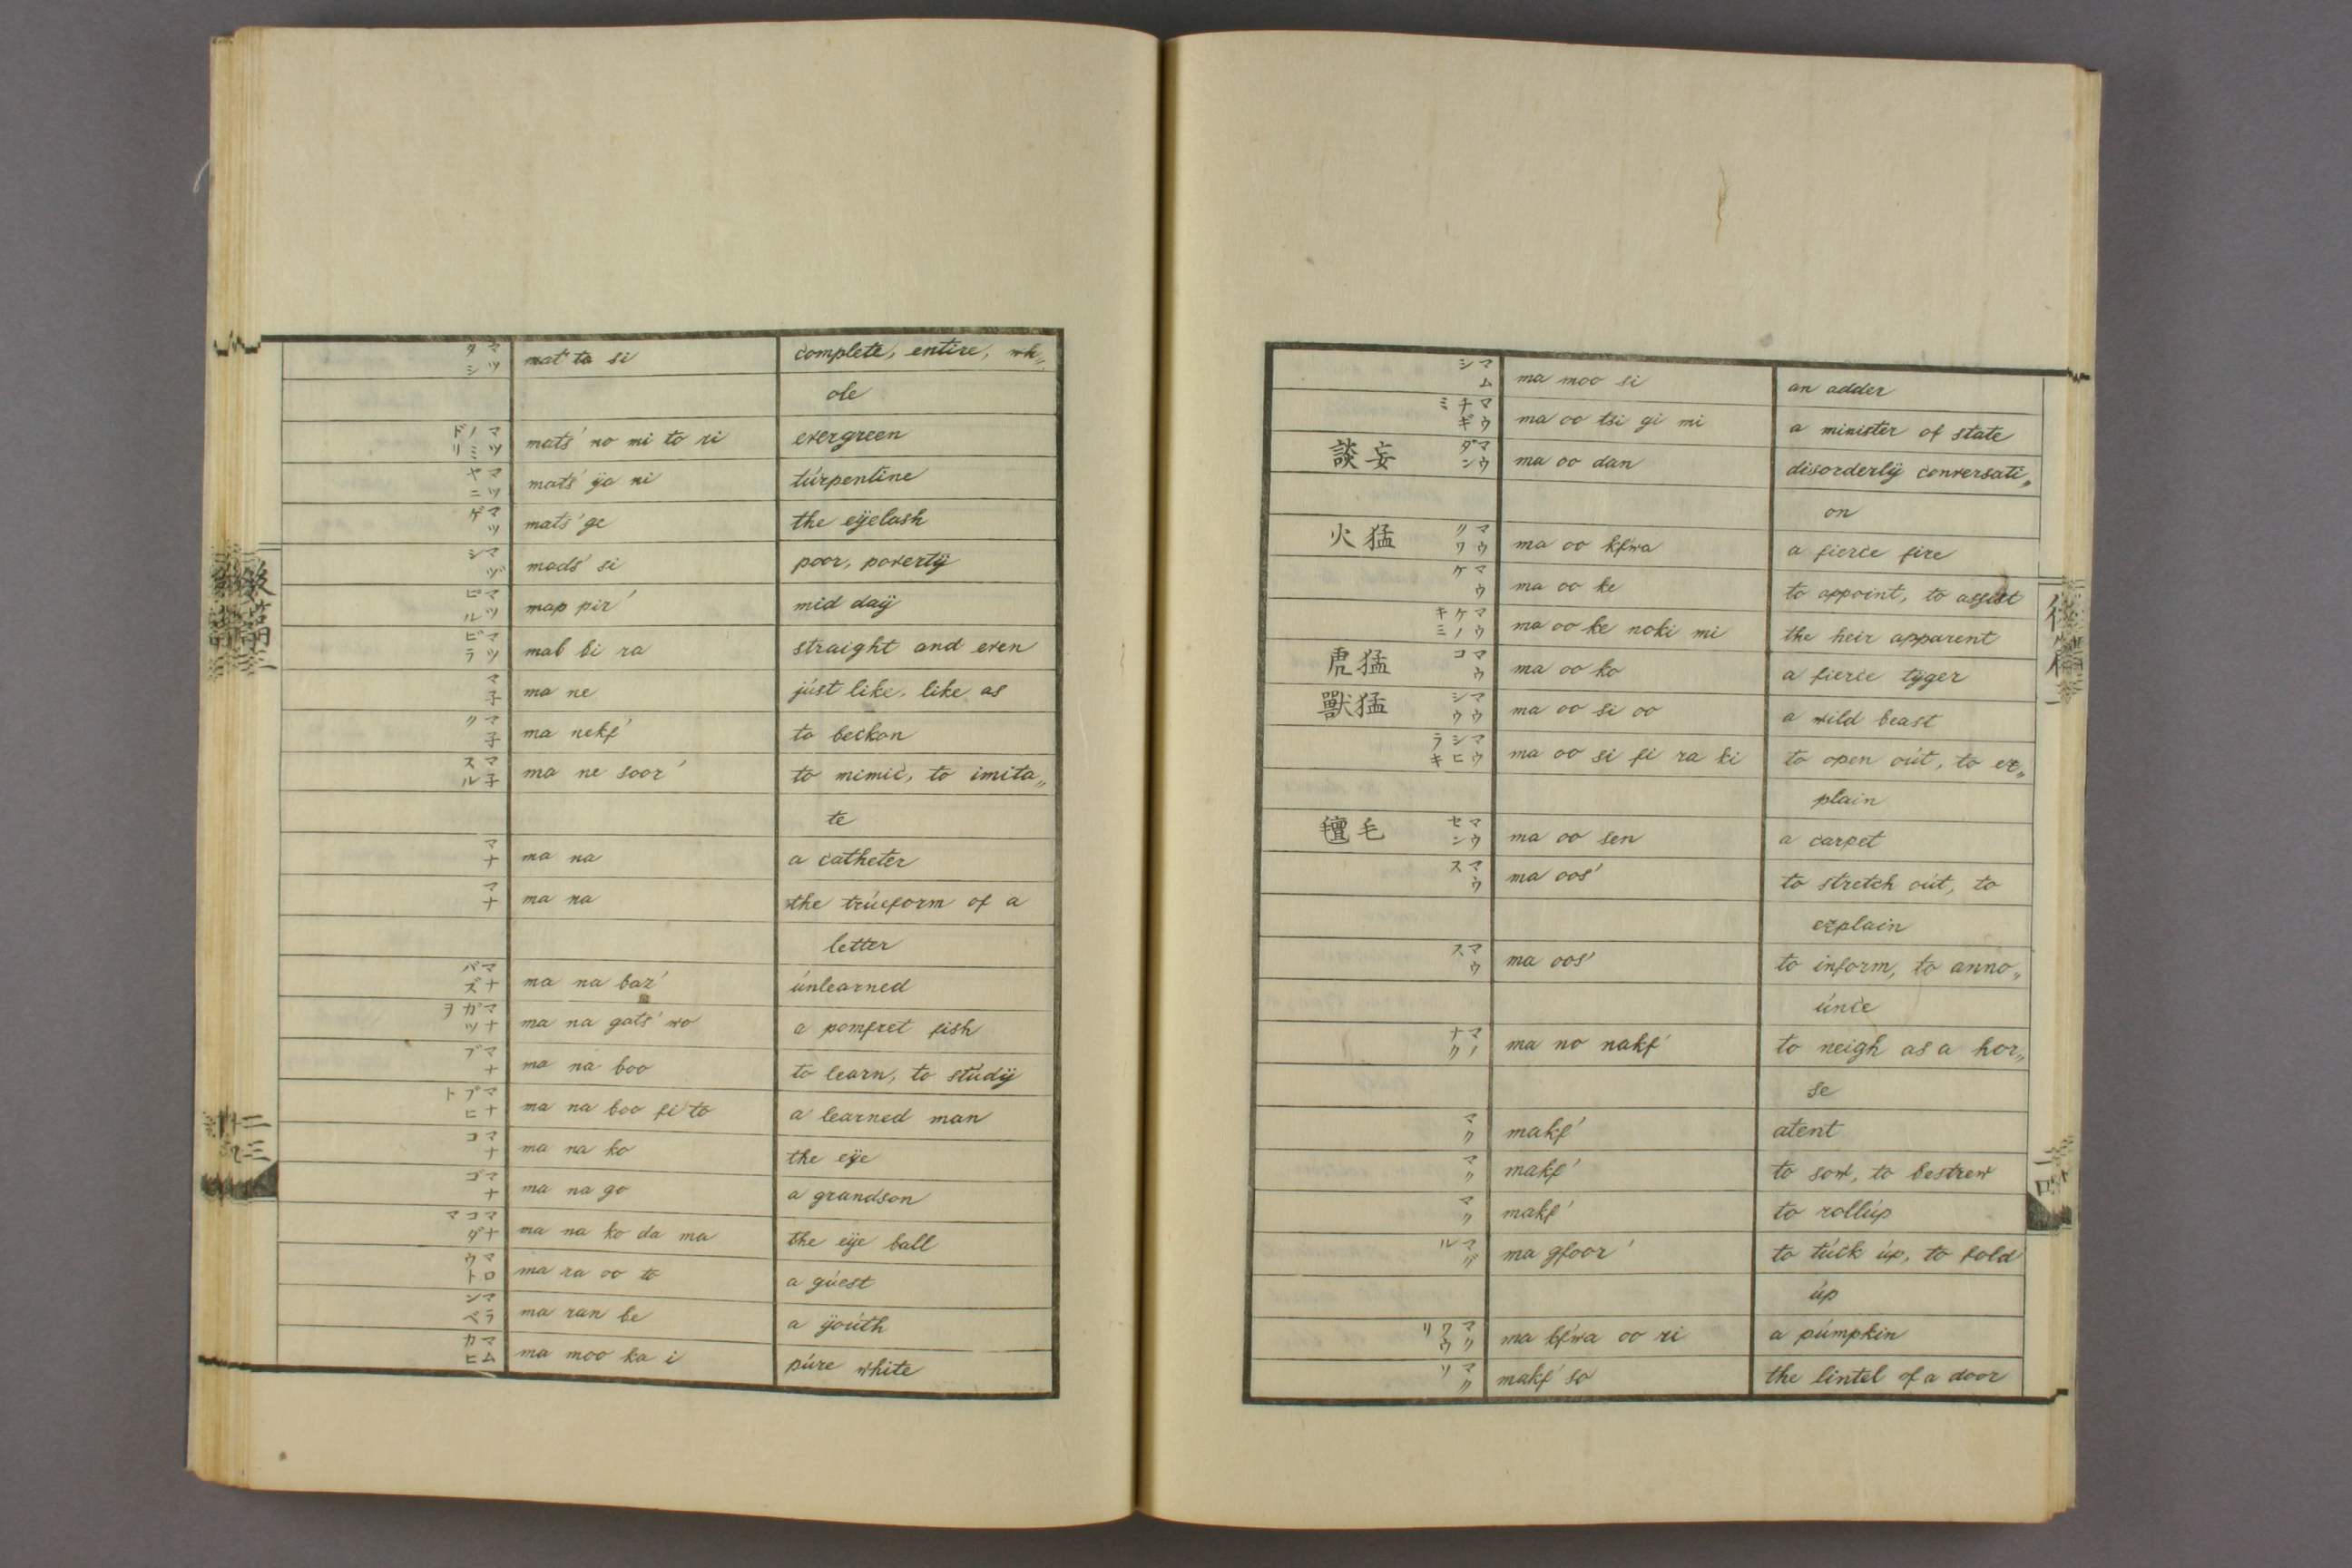 マツタシ mat' ta si complete, entire, wh„
ole
マツノミドリ mats' no mi to ri evergreen
マツヤニ mats' ÿa ni túrpentine
マツゲ mats' ge the eÿelash
マヅシ mads' si poor, povertÿ
マツピル map pir' mid daÿ
マツビラ mab bi ra straight and even
マ子 ma ne júst like, like as
マ子ク ma nekf' to beckon
マ子スル ma ne soor' to mimic, to imita„
te
マナ ma na a catheter
マナ ma na the trúeform of a
letter
マナバズ ma na baz' únlearned
マナガツヲ ma na gats' wo a pomfret fish
マナブ ma na boo to learn, to stúdÿ
マナブヒト ma na boo fi to a learned man
マナコ ma na ko the eÿe
マナゴ ma na go a grandson
マナコダマ ma na ko da ma the eÿe ball
マロウト ma ra oo to a gúest
マランベ ma ran be a ÿoúth
マムカヒ ma moo ka i púre white
マムシ ma moo si an adder
マウチギミ ma oo tsi gi mi a minister of state
談妄 マウダン ma oo dan disorderlÿ conversati„
on
火猛 マウクワ ma oo kfwa a fierce fire
マウケ ma oo ke to appoint, to assist
マウケノキミ ma oo ke noki mi the heir apparent
虎猛 マウコ ma oo ko a fierce tÿger
獸猛 マウシウ ma oo si oo a wild beast
マウシヒラキ ma oo si fi ra ki to open oút, to ex„
plain
氊毛 マウセン ma oo sen a carpet
マウス ma oos' to stretch oút, to
explain
マウス ma oos' to inform, to anno„
únce
マノナク ma no nakf' to neigh as a hor„
se
マク makf' atent
マク makf' to sow, to bestrew
マク makf' to rollúp
マグル ma gfoor' to túck úp, to fold
úp
マクワウリ ma kfwa oo ri a púmpkin
マクソ makf' so the lintel of a door